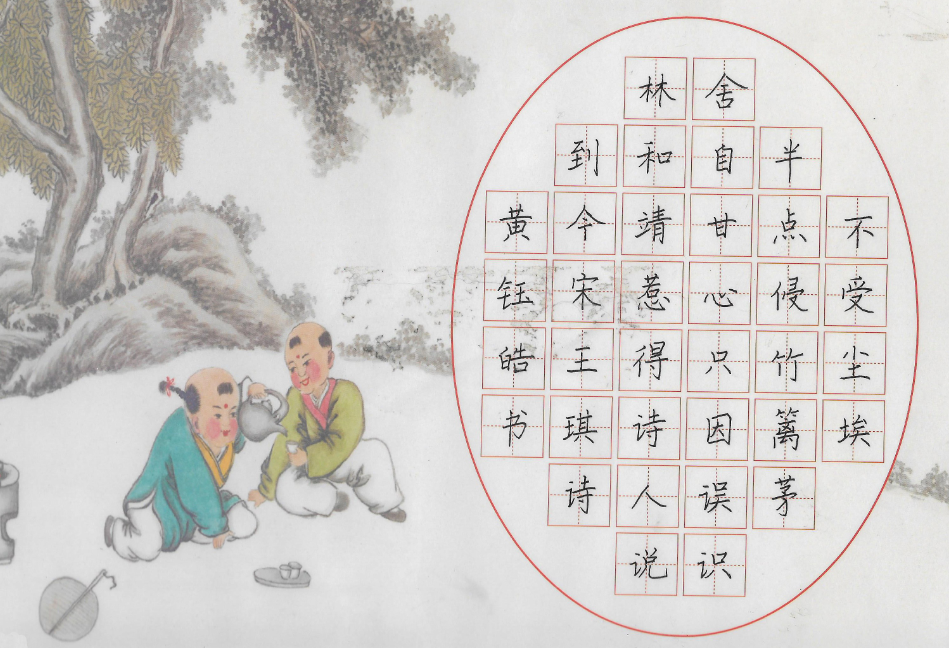 不受尘埃
半点侵竹篱茅
舍自甘心只因误识
林和靖惹得诗人说
到今宋王琪诗
黄钰皓书